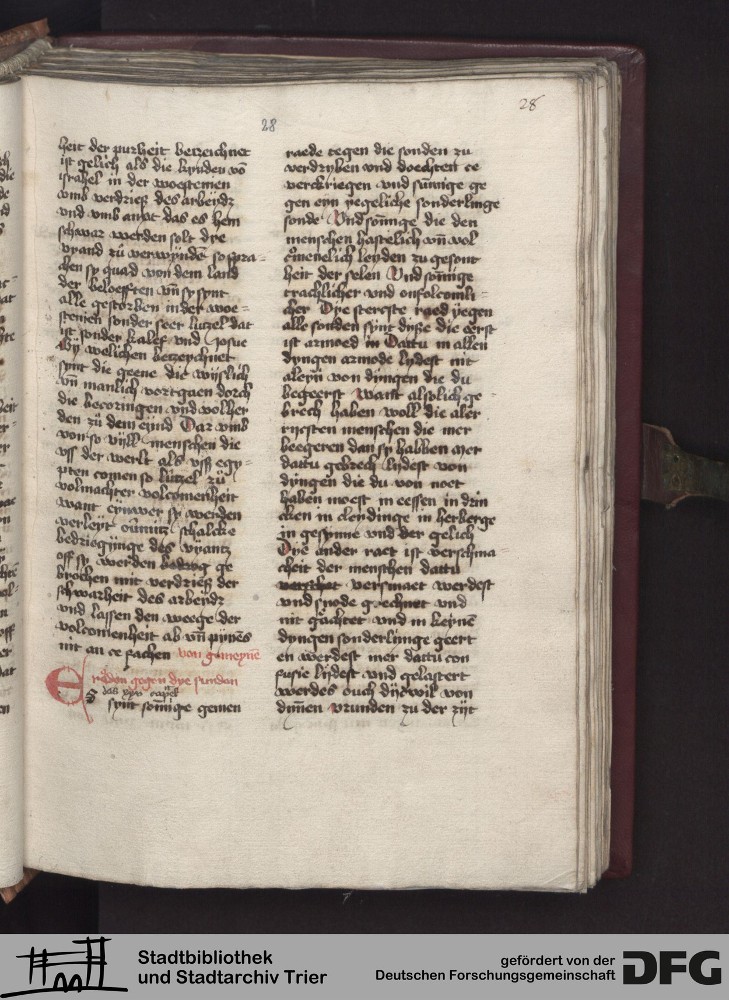 28
28
heit der purheit betzeichnet
ist gelich als die kynder vō
israhel in der woestenien
vmb verdrieß des arbeydz
vnd vmb anxt das es hem
schwar werden solt dye
vyand zů verwynden so spra=
chen sy quad von dem land
der beloefften vn̄ sy synt
alle gestorben in der woe=
stenien sonder seer lutzel dat
ist sonder kalef vnd Josue
By welichen betzeychnet
synt die geene die wyslich
vn̄ manlich vortgaen dorch
die becoringen vnd volher
den zů dem eynd Dar vmb
von so vyll menschen die
vss der werlt als vss egy=
pten comen so lůtzel zů
volmachter volcomenheit
want eynwer sy werden
verleyt oůmitz schalcke
bedriegůnge des vyantz
off sy werden bedrog ge
brochen mit verdrieß der
schwarheit des arbeydz
vnd lassen den weege der
volcomenheit ab vn̄ pynēs
nit an ce fachen von gemeynē
redden gegen dye sunden
das xxv capitel
ES synt sōmige gemen
raede tegen die sonden zu
verdryben vnd doechten ce
verckriegen vnd sůmige ge
gen eyn yegeliche sonderlinge
sonde Vnd sōmige die den
menschen hastelich vn̄ vol
cōmenelich leyden zu gesont
heit der selen Vnd sōmige
trachlicher vnd onfolcomli=
cher Dye stercste raed yegen
alle sonden synt dyße die eerst
ist armoed in Dattu in allen
dyngen armode lydest nit
aleyn von dyngen die du
begeerst want alsolich ge=
brech haben woll die aler
rycsten menschen die mer
beegeren dan sy habben Mer
dattu gebrech lydest von
dyngen die du von noet
haben moest in eessen in drin
cken in cleydinge in herberge
in gesynne vnd der gelich
Dye ander raet ist verschma=
cheit der menschen dattu
versmaet werdest
vnd snode gerechnet vnd
nit gůachtet vnd in keynē
dyngen sonderlinge geert
en werdest mer dattu con
fusie lydest vnd gelastert
werdes ouch dycwil von
dynen vrunden zu der zyt
Stadtbibliothek
und Stadtarchiv Trier
gefördert von der
Deutschen Forschungsgemeinschaft
DFG